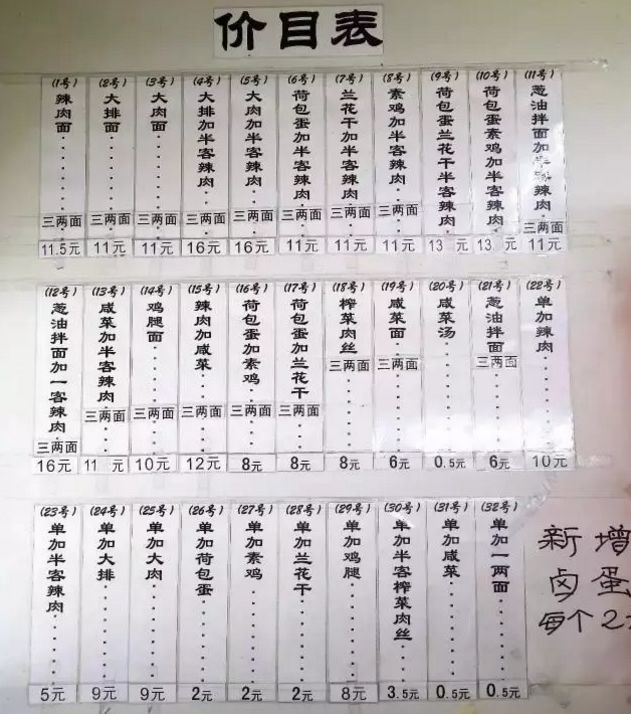 价目表
(1号)
辣肉面
三两面
11.5元
(2号)
大排面
三两面
11元
(3号)
大肉面
三两面
11元
(4号)
大排加半客辣肉
三两面
16元
(5号)
大肉加半客辣肉
三两面
16元
(6号)
荷包蛋加半客辣肉
三两面
11元
(7号)
兰花干加半客辣肉
三两面
11元
(8号)
素鸡加半客辣肉
三两面
11元
(9号)
荷包蛋兰花干半客辣肉
13元
(10号)
荷包蛋素鸡加半客辣肉
13.元
(11号)
葱油拌面加半客辣肉
三两面
11元
(12号)
葱油拌面加一客辣肉
三两面
16元
(13号)
咸菜加半客辣肉
三两面
11元
(14号)
鸡腿面
三两面
10元
(15号)
辣肉加咸菜
三两面
12元
(16号)
荷包蛋加素鸡
三两面
8元
(17号)
荷包蛋加兰花干
三两面
8元
(18号)
榨菜肉丝
三两面
8元
(19号)
咸菜面
三两面
6元
(20号)
咸菜汤
0.5元
(21号)
葱油拌面
三两面
6元
(22号)
单加辣肉
10元
(23号)
单加半客辣肉
5元
(24号)
单加大排
9元
(25号)
单加大肉
9元
(26号)
单加荷包蛋
2元
(27号)
单加素鸡
2元
(28号)
单加兰花干
2元
(29号)
单加鸡腿
8元
(30号)
单加半客榨菜肉丝
3.5元
(31号)
单加咸菜
0.5元
(32号)
单加一两面
0.5元
新增
卤蛋
每个2